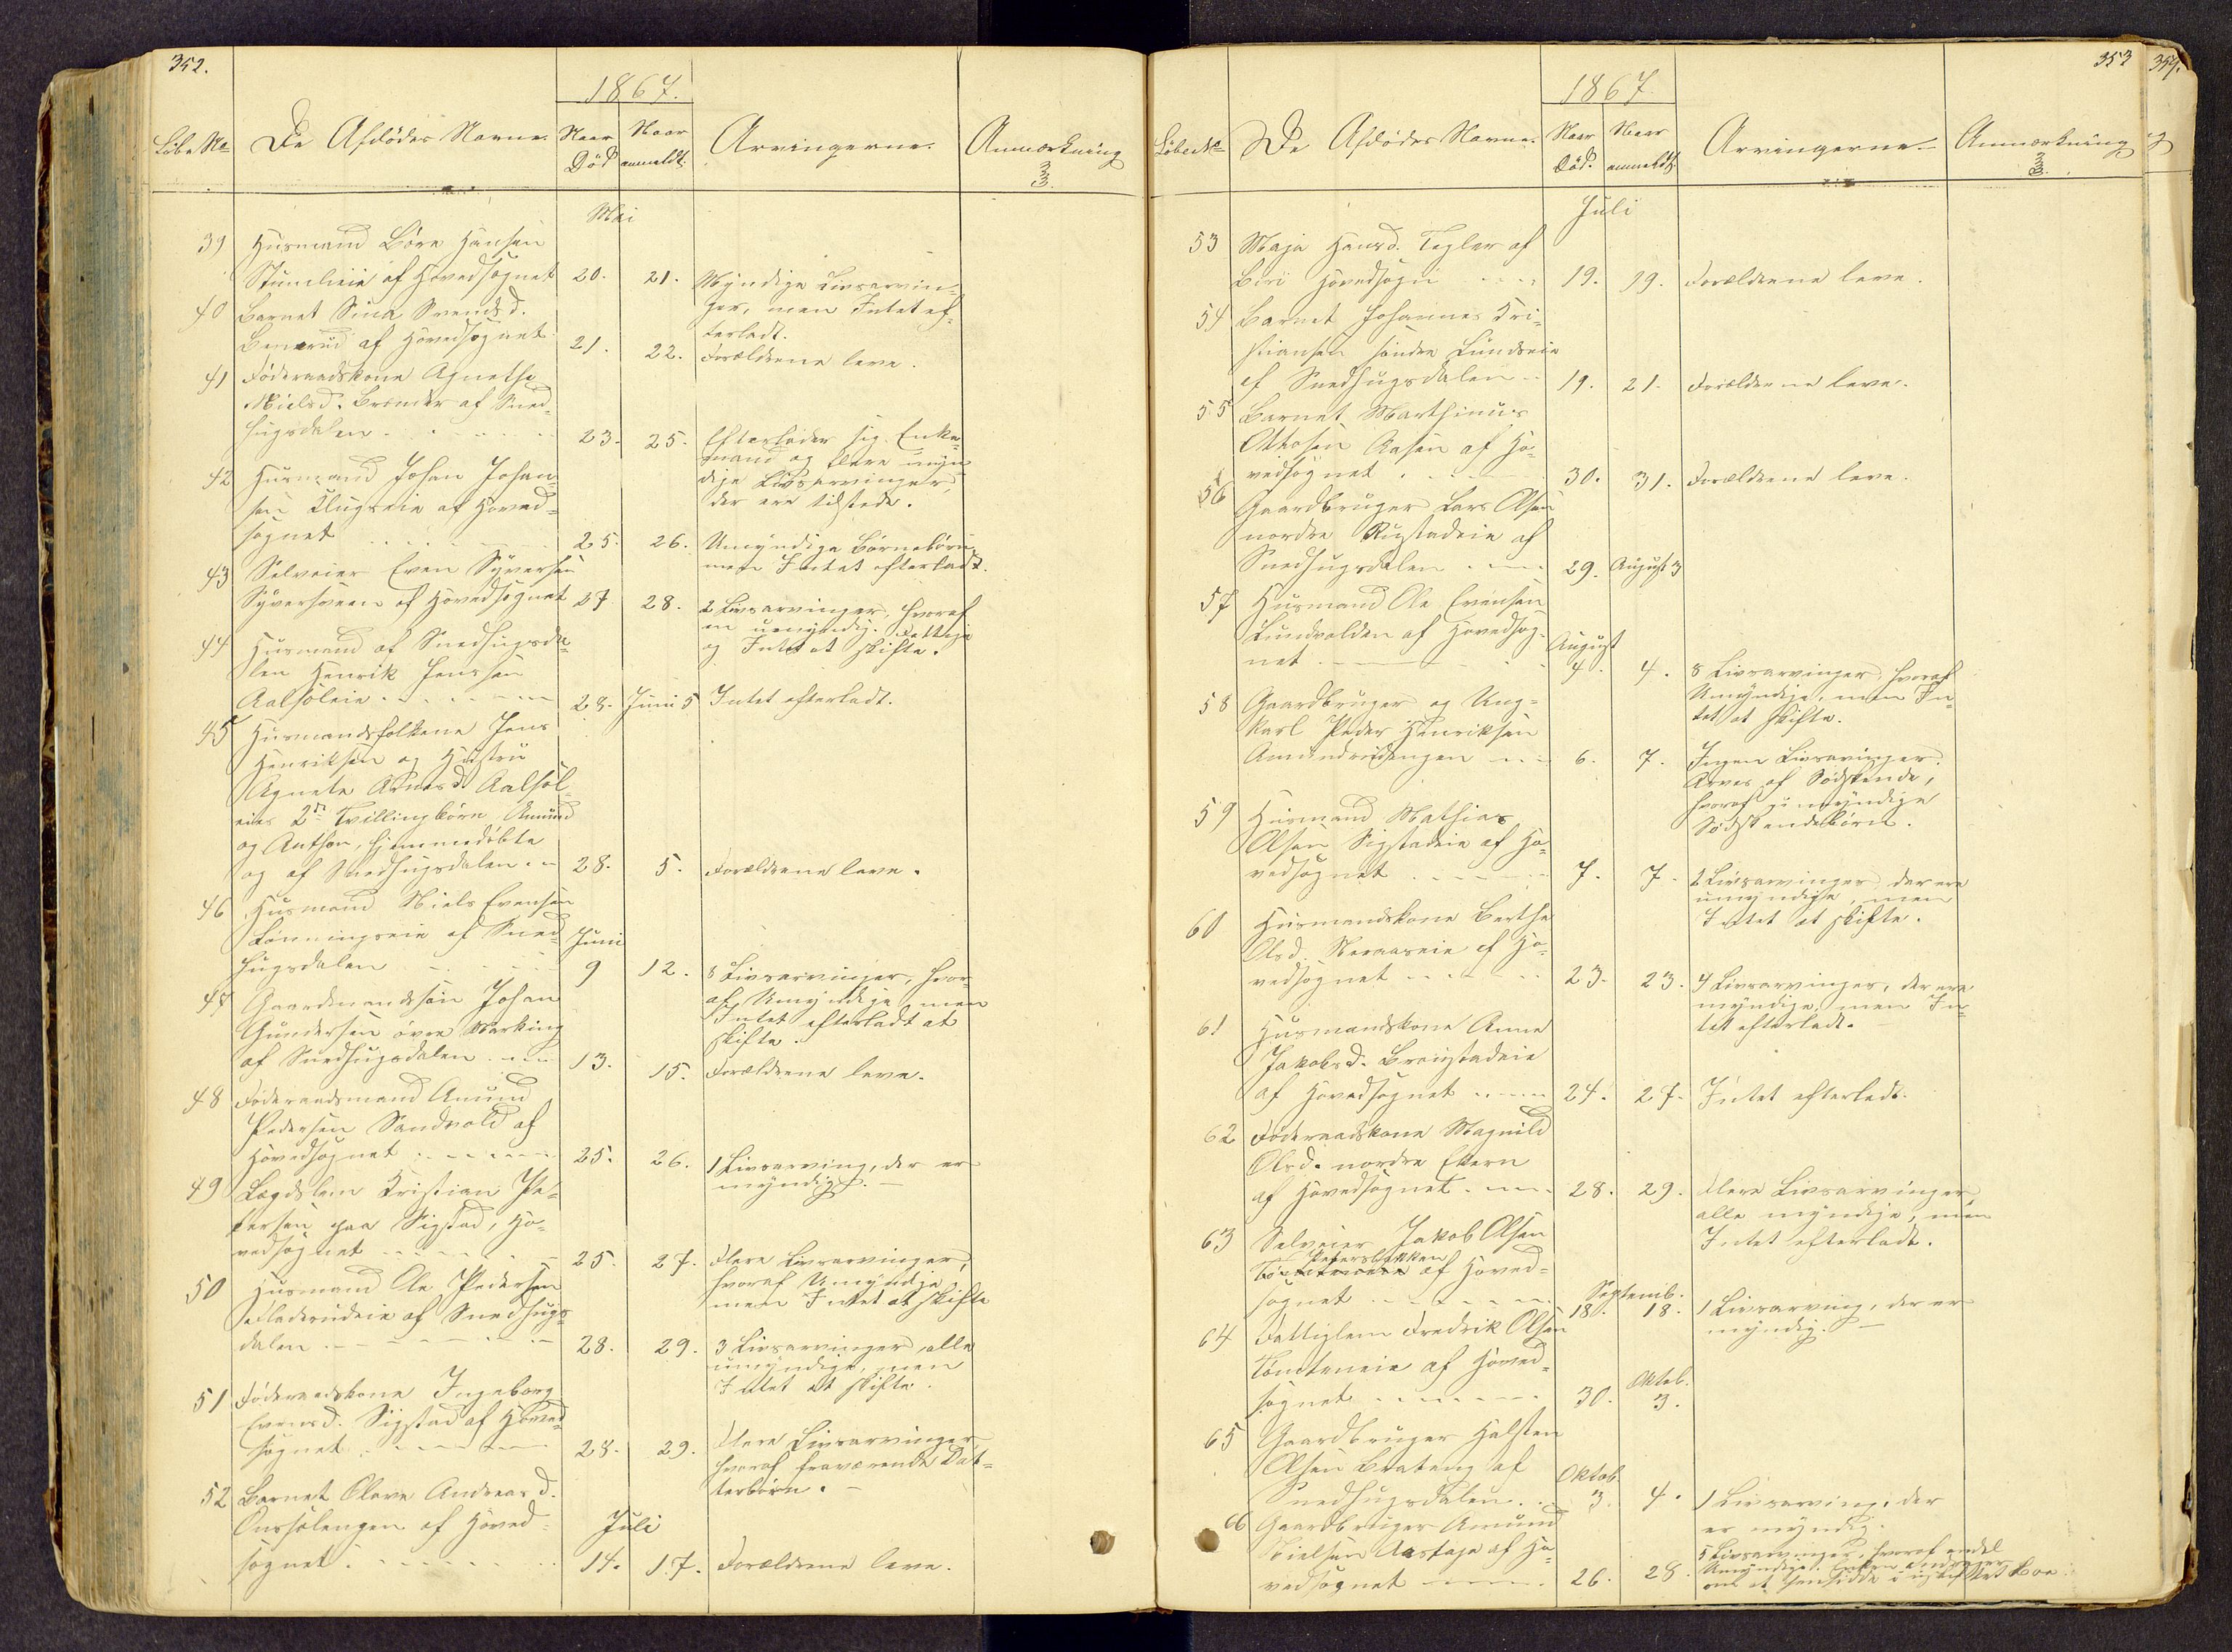 352.
1867.
Löbe No
De Afdödes Navne.
Naar Död
Naar anmeldt.
Arvingerne.
Anmærkning
Mai
39 Husmand Böre Hansen
af Hovedsognet 20. 21. Myndige Livsarvin-
ger, men Intet ef-
terladt.
40 Barnet Sina Svendsd.
Benerud af Hovedsognet 21. 22. Forældrene leve.
41 Föderaadskone Agnethe
Nielsd. af Sned-
hugsdalen 23. 25. Efterlader sig Enke-
mand og flere myn-
dige Livsarvinger,
der ere tilstede.
42 Husmand Johan Johan-
sen Klugseie af Hoved-
sognet 25. 26. Umyndige Börnebörn
men Intet efterladt.
43 Selveier Even Syversen
Syversveen af Hovedsognet 27 28. 2 Livsarvinger, hvoraf
en umyndig. Fattige
og Intet at skifte.
44 Husmand af Snedhugsda-
len Henrik Jenssen
Aalsöleie 28. Juni 5 Intet efterladt.
45 Husmandsfolkene Jens
Henriksen og Hustru
Agnete Arnesd. Aalsöl-
eies 2de Tvillingbörn Amund
og Anthon, hjemmedöbte
og af Snedhugsdalen 28. 5. Forældrene leve.
46 Husmand Niels Evensen
Lönningseie af Sned- Juni
hugsdalen 9 12. 8 Livsarvinger, hvor-
af Umyndige men
Intet efterladt at
skifte.
47 Gaardmandssön Johan
Gundersen övre
af Snedhugsdalen 13. 15. Forældrene leve.
48 Föderaadsmand Amund
Pedersen Sandvold af
Hovedsognet 25. 26. 1 Livsarving, der er
myndig.
49 Lægdslem Kristian Pe-
dersen paa Sigstad, Ho-
vedsognet 25. 27. Flere Livsarvinger,
hvoraf Umyndige
men Intet at skifte
50 Husmand Ole Pedersen
Fladerudeie af Snedhugs-
dalen 28. 29. 3 Livsarvinger, alle
umyndige, men
Intet at skifte.
51 Föderaadskone Ingeborg
Evensd. Sigstad af Hoved-
sognet 28. 29. Flere Livsarvinger,
hvoraf fraværende Dat-
terbörn.
52 Barnet Olave Andreasd.
Onssölengen af Hoved- Juli
sognet 14. 17. Forældrene leve.
353
354.
1867
Löbe No
De Afdödes Navne.
Naar Död.
Naar anmeldt.
Arvingerne.
Anmærkning
Juli
53 Maja Hansd. Tegler af
Biri Hovedsogn 19. 19. Forældrene leve.
54 Barnet Johannes Kri-
stiansen söndre Lundseie
af Snedhugsdalen 19. 21. Forældrene leve.
55 Barnet Marthinus
Ottosen Aasen af Ho-
vedsognet 30. 31. Forældrene leve.
56 Gaardbruger Lars Olsen
nordre Rustadeie af
Snedhugsdalen 29. August 3
57 Husmand Ole Evensen
Lundvolden af Hovedsog- August
net 4. 4. 8 Livsarvinger, hvoraf
Umyndige, men In-
tet at skifte.
58 Gaardbruger og Ung-
karl Peder Henriksen
Amundrödengen 6. 7. Ingen Livsarvinger.
Arves af Södskende,
hvoraf umyndige
Södskendebörn.
59 Husmand Mathias
Olsen Sigstadeie af Ho-
vedsognet 7. 7. 2 Livsarvinger, der ere
umyndige, men
Intet at skifte.
60 Husmandskone Berthe
Olsd. af Ho-
vedsognet 23. 23. 4 Livsarvinger, der ere
myndige, men In-
tet efterladt.
61 Husmandskone Anne
Jakobsd. Braastadeie
af Hovedsognet 24. 27. Intet efterladt.
62 Föderaadskone Magnild
Olsd. nordre Ekern
af Hovedsognet 28. 29. Flere Livsarvinger,
alle myndige, men
Intet efterladt.
63 Selveier Jakob Olsen
Petersbakken
af Hoved-
sognet Septemb. 18. 18. 1 Livsarving, der er
myndig.
64 Fattiglem Fredrik Olsen
Tömteneie af Hoved-
sognet 30. Oktob. 3.
65 Gaardbruger Halsten
Olsen Brateng af Oktob
Snedhugsdalen 3. 4. 1 Livsarving, der
er myndig.
66 Gaardbruger Amund
Nielsen Aastaje af Ho-
vedsognet 26. 28. 5 Livsarvinger, hvoraf endel
Umyndige. Enken andrager
om at hensidde i uskiftet Boe